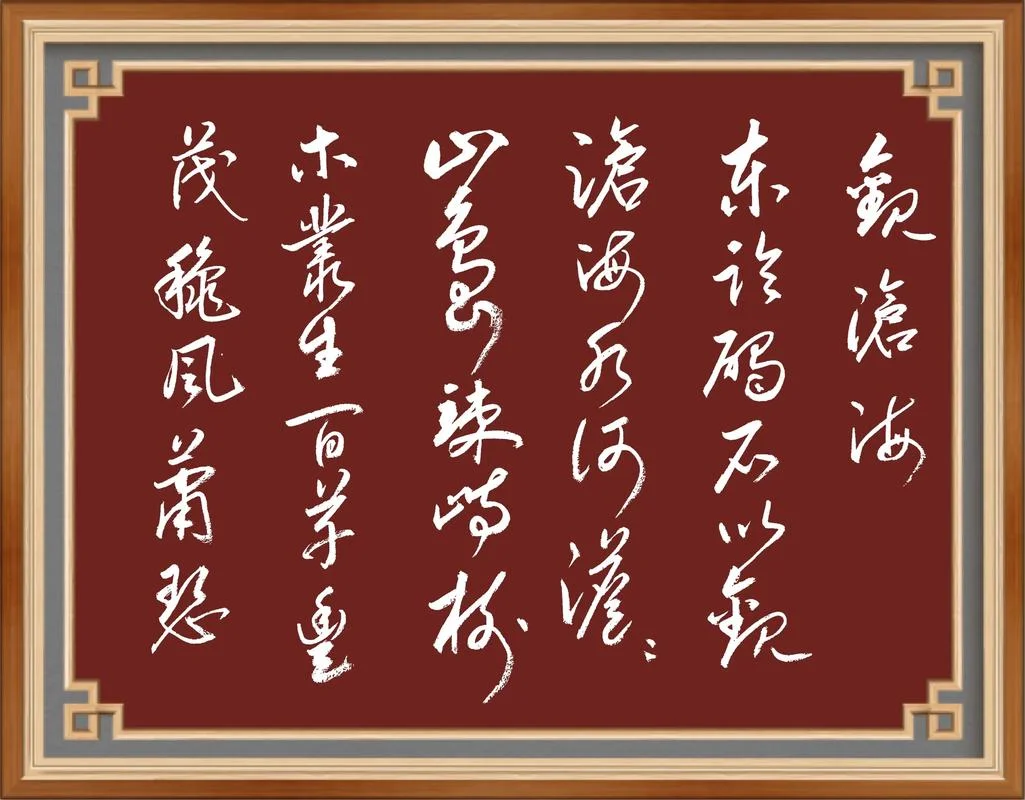 觀滄海
东临碣石以觀
滄海水何澹々
山島竦峙樹
木叢生百草豐
茂穐风蕭瑟